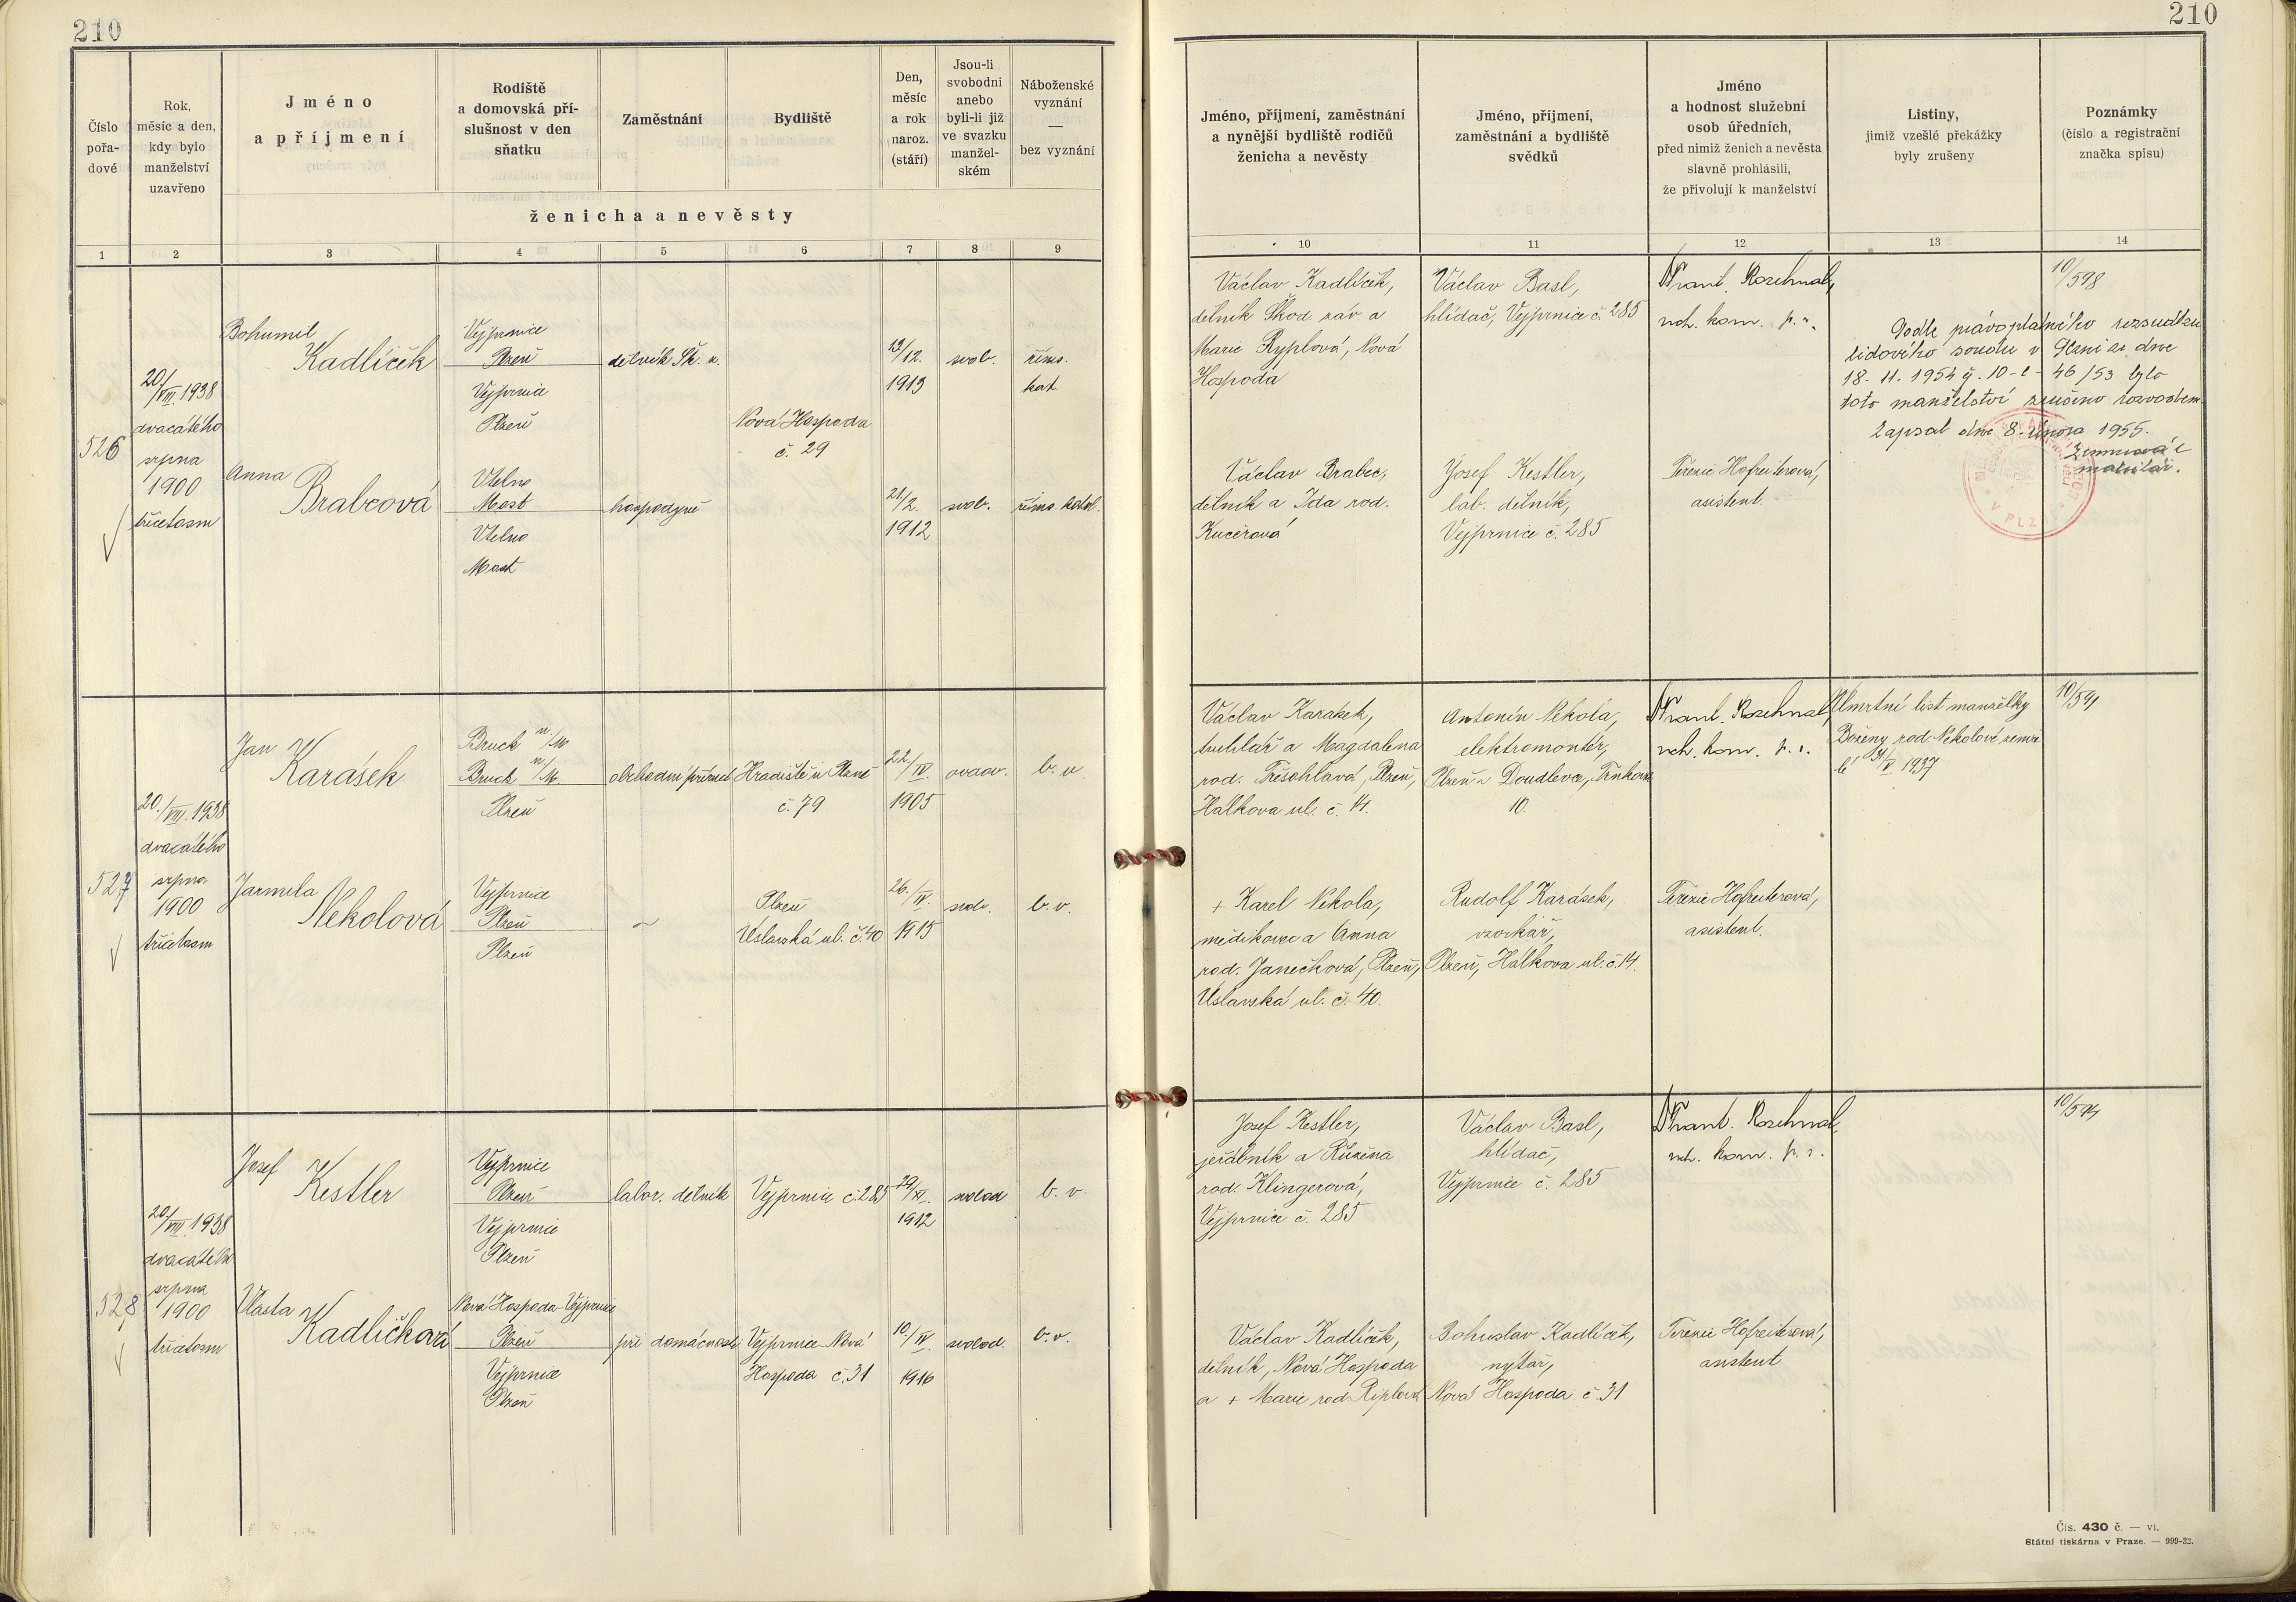 210
210
Číslo pořadové
Rok, měsíc a den, kdy bylo manželství uzavřeno
Jméno a příjmení
Rodiště a domovská příslušnost v den sňatku
Zaměstnání
Bydliště
Den, měsíc a rok naroz. (stáří)
Jsou-li svobodni anebo byli-li již ve svazku manželském
Náboženské vyznání — bez vyznání
ženicha a nevěsty
Jméno, příjmení, zaměstnání a nynější bydliště rodičů ženicha a nevěsty
Jméno, příjmení, zaměstnání a bydliště svědků
Jméno a hodnost služební osob úředních, před nimiž ženich a nevěsta slavně prohlásili, že přivolují k manželství
Listiny, jimiž vzešlé překážky byly zrušeny
Poznámky (číslo a registrační značka spisu)
1 2 3 4 5 6 7 8 9 10 11 12 13 14
526
20/VIII. 1938
dvacátého
srpna
1900
třicetosm
Bohumil
Kadlíček
Vejprnice
Plzeň
Vejprnice
Plzeň
dělník Šk. z.
Nová Hospoda
č. 29
13/12.
1913
svob.
říms.
kat.
Anna
Brabcová
Vtelno
Most
Vtelno
Most
hospodyně
21/2.
1912
svob.
říms. katol.
Václav Kadlíček,
dělník Škod. záv. a
Marie Ryplová, Nová
Hospoda
Václav Basl,
hlídač, Vejprnice č. 285
Frant. Rozehnal,
vrch. kom. p. s.
10/598
Podle právoplatného rozsudku
lidového soudu v Plzni ze dne
18. 11. 1954 č. 10-c-46/53 bylo
toto manželství zrušeno rozvodem.
Zapsal dne 8. února 1955.
matrikář.
V PLZNI
Václav Brabec,
dělník a Ida rod.
Kučerová
Josef Kestler,
lab. dělník,
Vejprnice č. 285
Terezie Hofreiterová,
asistent.
527
20./VIII. 1938
dvacátého
srpna
1900
třicetosm
Jan
Karásek
Bruck n/M
Bruck n/M.
Plzeň
obchodní příručí
Hradiště u Plzně
č. 79
22/IV.
1905
ovdov.
b. v.
Jarmila
Nekolová
Vejprnice
Plzeň
Plzeň
~
Plzeň
Úslavská ul. č. 40
26./IV.
1915
svob.
b. v.
Václav Karásek,
truhlář a Magdalena
rod. Třesohlavá, Plzeň,
Hálkova ul. č. 14.
Antonín Nekola,
elektromontér,
Plzeň - Doudlevce, Trnkova
10.
Frant. Rozehnal,
vrch. kom. p. s.
Úmrtní list manželky
Boženy rod. Nekolové, zemře
lé 31/V. 1937
10/591
+ Karel Nekola,
mědikovec a Anna
rod. Janečková, Plzeň,
Úslavská ul. č. 40.
Rudolf Karásek,
vzorkář,
Plzeň, Hálkova ul. č. 14.
Terezie Hofreiterová,
asistent.
528
20/VIII. 1938
dvacátého
srpna
1900
třicetosm
Josef
Kestler
Vejprnice
Plzeň
Vejprnice
Plzeň
labor. dělník
Vejprnice č. 285
29/XI.
1912
svobod
b. v.
Vlasta
Kadlíčková
Nová Hospoda-Vejprnice
Plzeň
Vejprnice
Plzeň
při domácnosti
Vejprnice-Nová
Hospoda č. 31
10./IV.
1916
svobod.
b. v.
Josef Kestler,
jeřábník a Růžena
rod. Klingerová,
Vejprnice č. 285
Václav Basl,
hlídač,
Vejprnice č. 285
Frant. Rozehnal,
vrch. kom. p. s.
10/594
Václav Kadlíček,
dělník, Nová Hospoda
a + Marie rod. Riplová
Bohuslav Kadlíček,
nýtař,
Nová Hospoda č. 31
Terezie Hofreiterová,
asistent
Čís. 430 č. — vi.
Státní tiskárna v Praze. — 999-32.